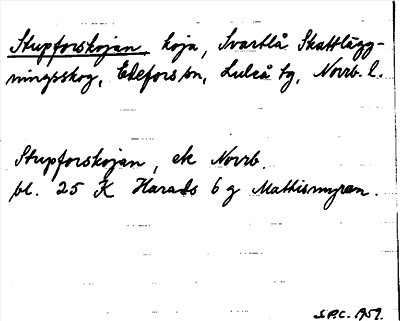 Stupforskojan, koja, Svartlå Skattlägg-
ningsskog, Edefors sn, Luleå tg, Norrb. l.
Stupforskojan, ek Norrb.
bl. 25 K Harads 6 g Mathismyran.
S.P.C. 1959.